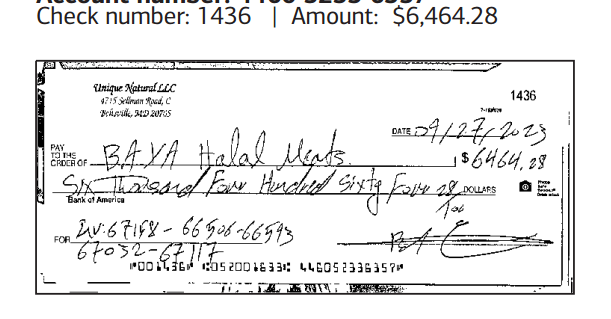 Check number: 1436 | Amount: $6,464.28
Unique Natural LLC
4715 Sellman Road, C
Beltsville, MD 20705
1436
DATE 09/27/2023
PAY
TO THE
ORDER OF BAYA Halal Meats
$6464.28
Six Thousand Four Hundred Sixty Four 28/100 DOLLARS
Bank of America
FOR INV:67158 - 66506-66593
67032-67117
⑈001436⑈ ⑆052001633⑆ 446052336357⑈